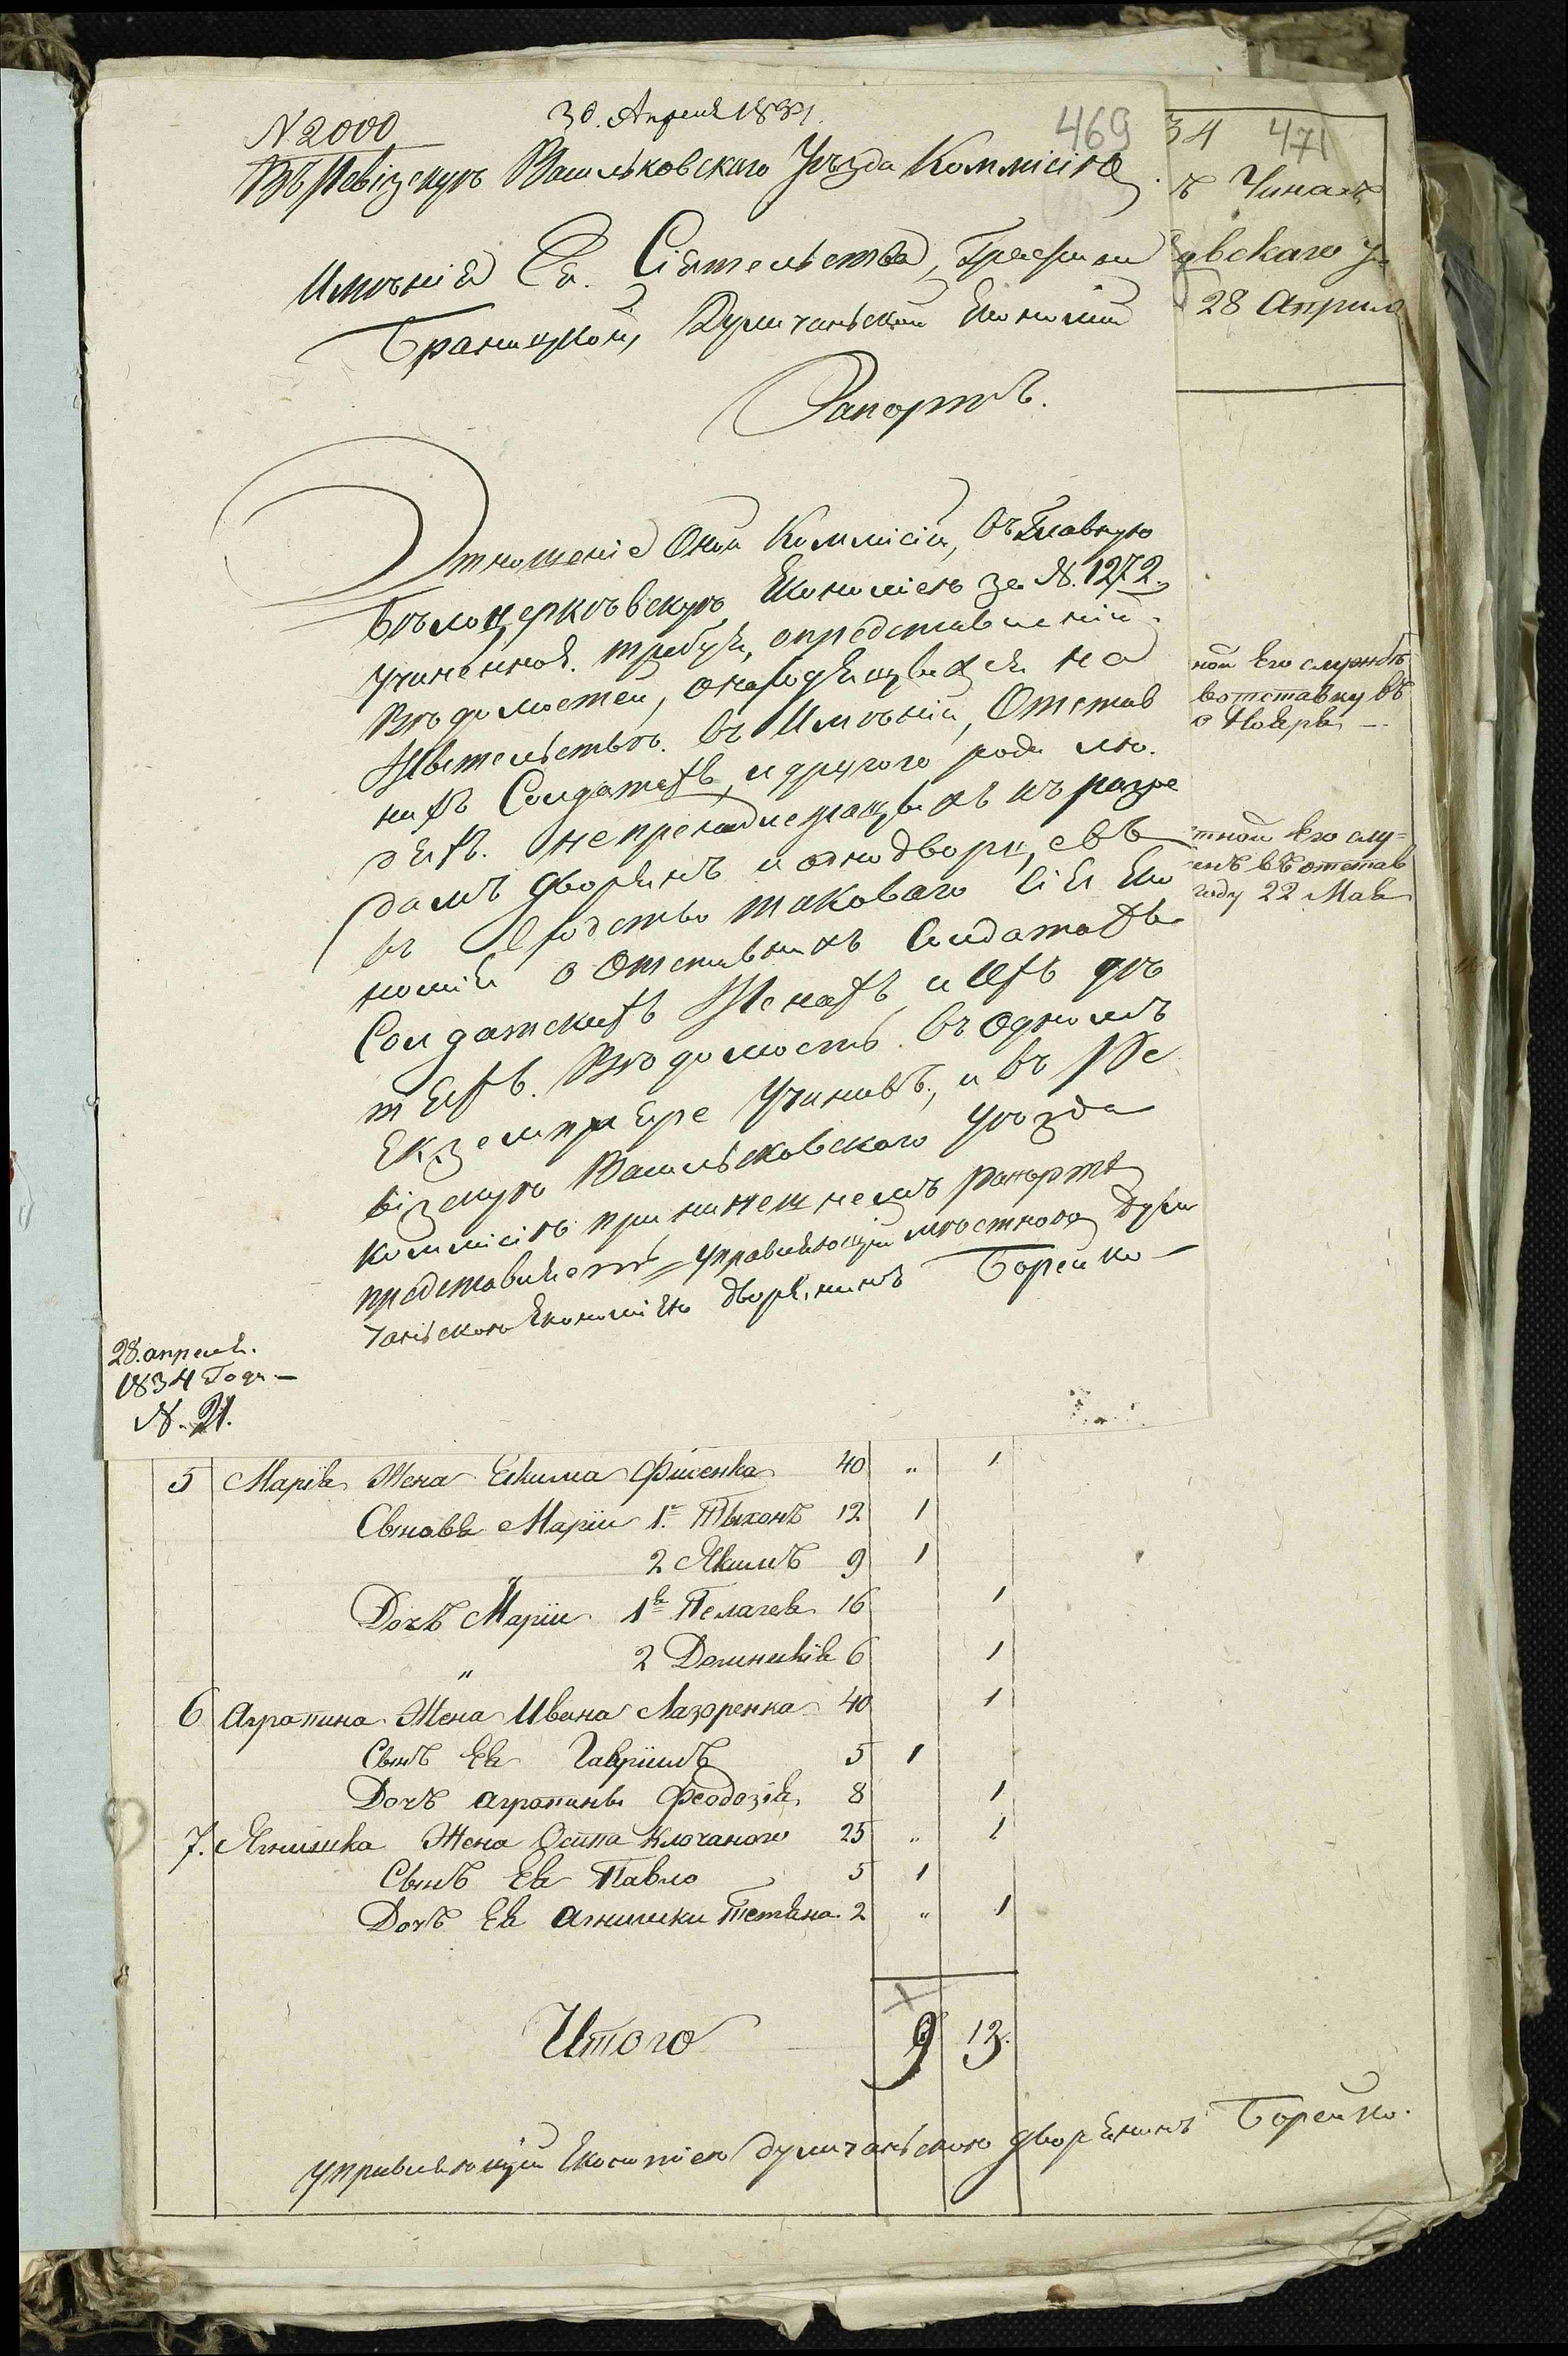 N 2000
30. Апреля 1834.
469
Въ Ревізскую Васильковскаго Уѣзда Коммісію
Имѣнія Ея. Сіятельства, Графини
Браницкой, Думичаньской Економіи
Рапортъ.
Отношеніе Оной Коммісіи, въ Главную
Бѣлоцерковскую Економію за N. 1272.
учиненное. требуя, о представленіи.
Вѣдомостей, о находящихся на
Жительствѣ. въ Имѣніи, Отстав
ныхъ Солдатахъ, и другого рода лю.
дяхъ. непренадлежащихъ къ разря
дамъ дворянъ и однодворцевъ
въ средство таковаго сія Еко
номія о Отставныхъ Солдатахъ
Солдатскихъ Женахъ, и Ихъ дѣ
тяхъ. Вѣдомость. въ Одномъ
Екземпляре учинивъ, и въ Ре
візскую Васильковского уѣзда
Коммісію при нинешнемъ рапортѣ
представляетъ управляющій мѣстною Думи
чаньскою Економіею дворянинъ Борейко
28. апреля.
1834 Года —
N. 21.
34 471
ъ Чинахъ
овскаго у
28 Априля
ной Его службѣ
вотставку въ
о Ноября —
тной Его слу=
енъ въ отстав
году 22 Мая
5 Марія Жена Екима Фисенка 40 " 1
Сыновя Маріи 1й Тыхонъ 12 1
" 2 Якимъ 9 1
Дочь Маріи 1я Пелагея 16 1
" 2 Доминикія 6 1
6 Агропина Жена Ивана Лазоренка 40 1
Сынъ Ея Гавріилъ 5 1
Дочь агропины Феодозія 8 1
7. Ягнишка Жена Осипа Клочаного 25 " 1
Сынъ Ея Павло 5 1
Дочь Ея Агнишки Тетяна 2 " 1
Итого 9 13.
управляющій Економіею думичаньскою дворянинъ Борейко.